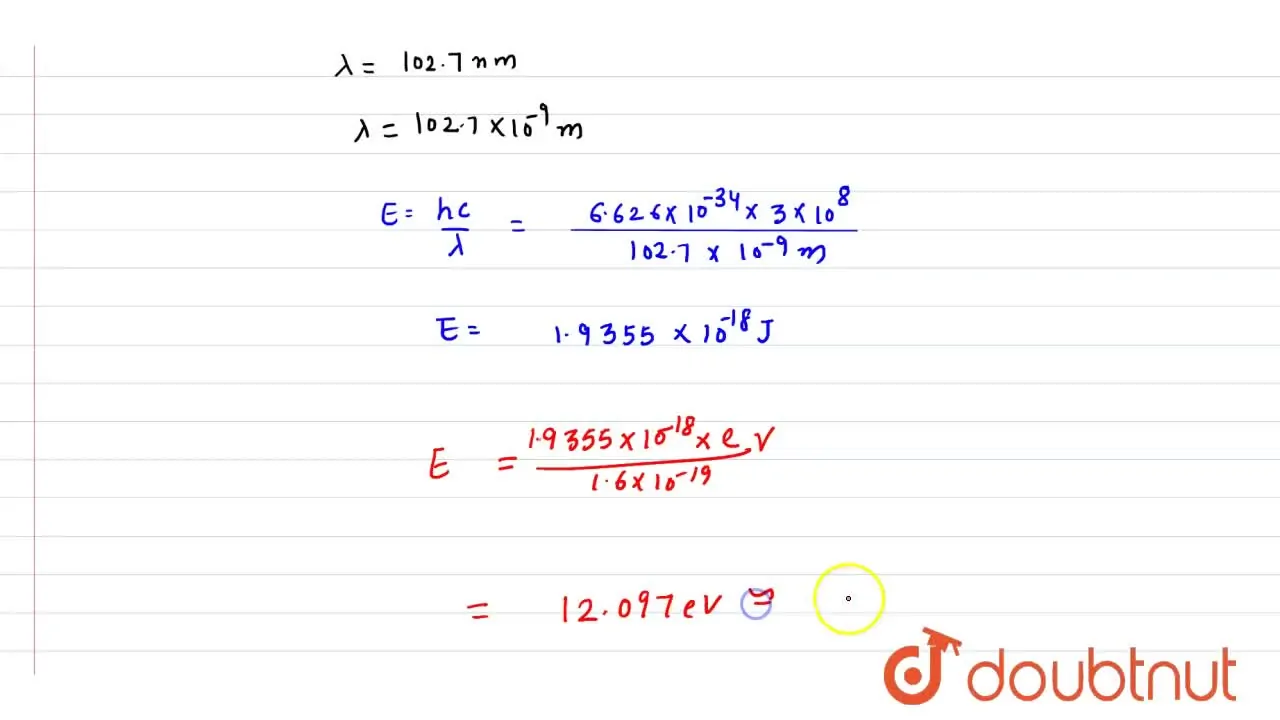 λ = 102.7 nm
λ = 102.7 × 10⁻⁹ m
E = hc/λ = 6.626 × 10⁻³⁴ × 3 × 10⁸ / 102.7 × 10⁻⁹ m
E = 1.9355 × 10⁻¹⁸ J
E = 1.9355 × 10⁻¹⁸ × eV / 1.6 × 10⁻¹⁹
= 12.097 eV ≅
doubtnut